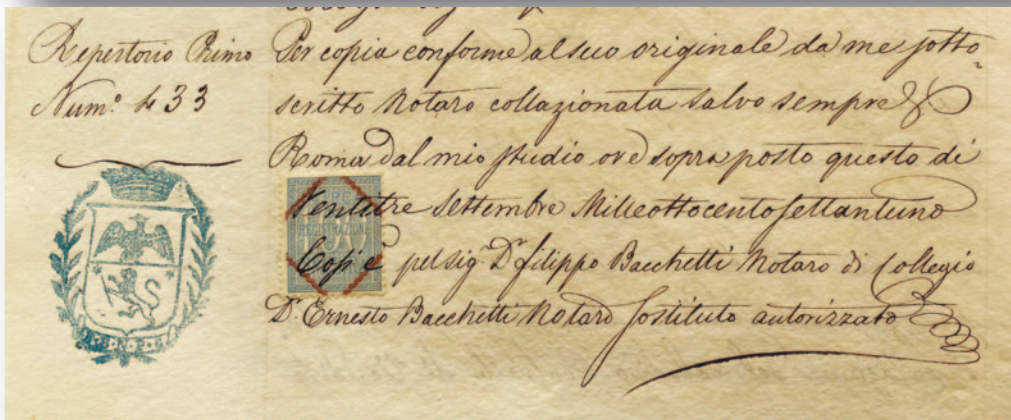 Repertorio Primo
Num.º 433
Per copia conforme al suo originale da me sotto=
scritto Notaro collazionata salvo sempre &
Roma dal mio studio ove sopra posto questo dì
Ventitre Settembre Milleottocentosettantuno
REGISTRAZIONE
Così è pel Sig.r D.r Filippo Bacchetti Notaro di Collegio
D.r Ernesto Bacchetti Notaro Sostituto autorizzato